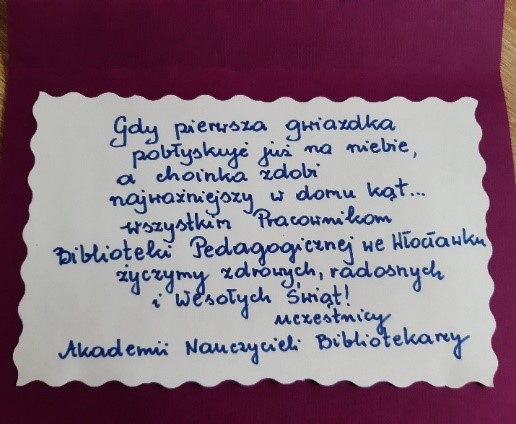 Gdy pierwsza gwiazdka
pobłyskuje już na niebie,
a choinka zdobi
najważniejszy w domu kąt...
wszystkim Pracownikom
Biblioteki Pedagogicznej we Włocławku
życzymy zdrowych, radosnych
i Wesołych Świąt!
uczestnicy
Akademii Nauczycieli Bibliotekarzy